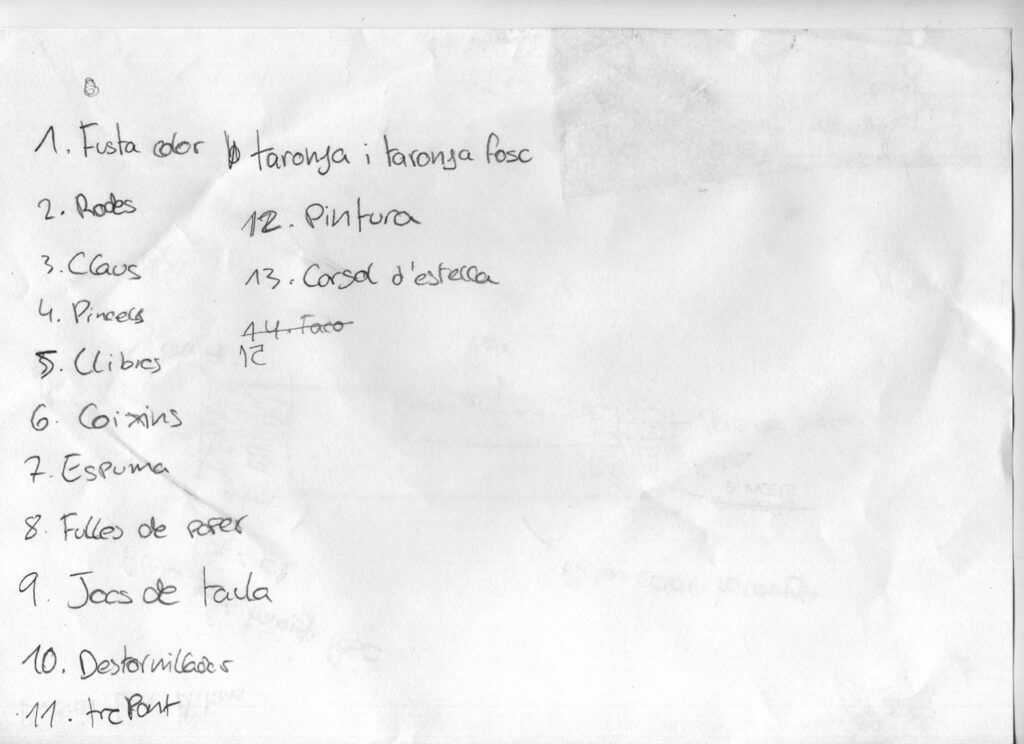 1. Fusta color taronja i taronja fosc
2. Rodes
3. Claus
4. Pincells
5. Llibres
6. Coixins
7. Espuma
8. Fulles de paper
9. Jocs de taula
10. Destornillador
11. trepant
12. Pintura
13. Carsol d'estrella
14. Taco